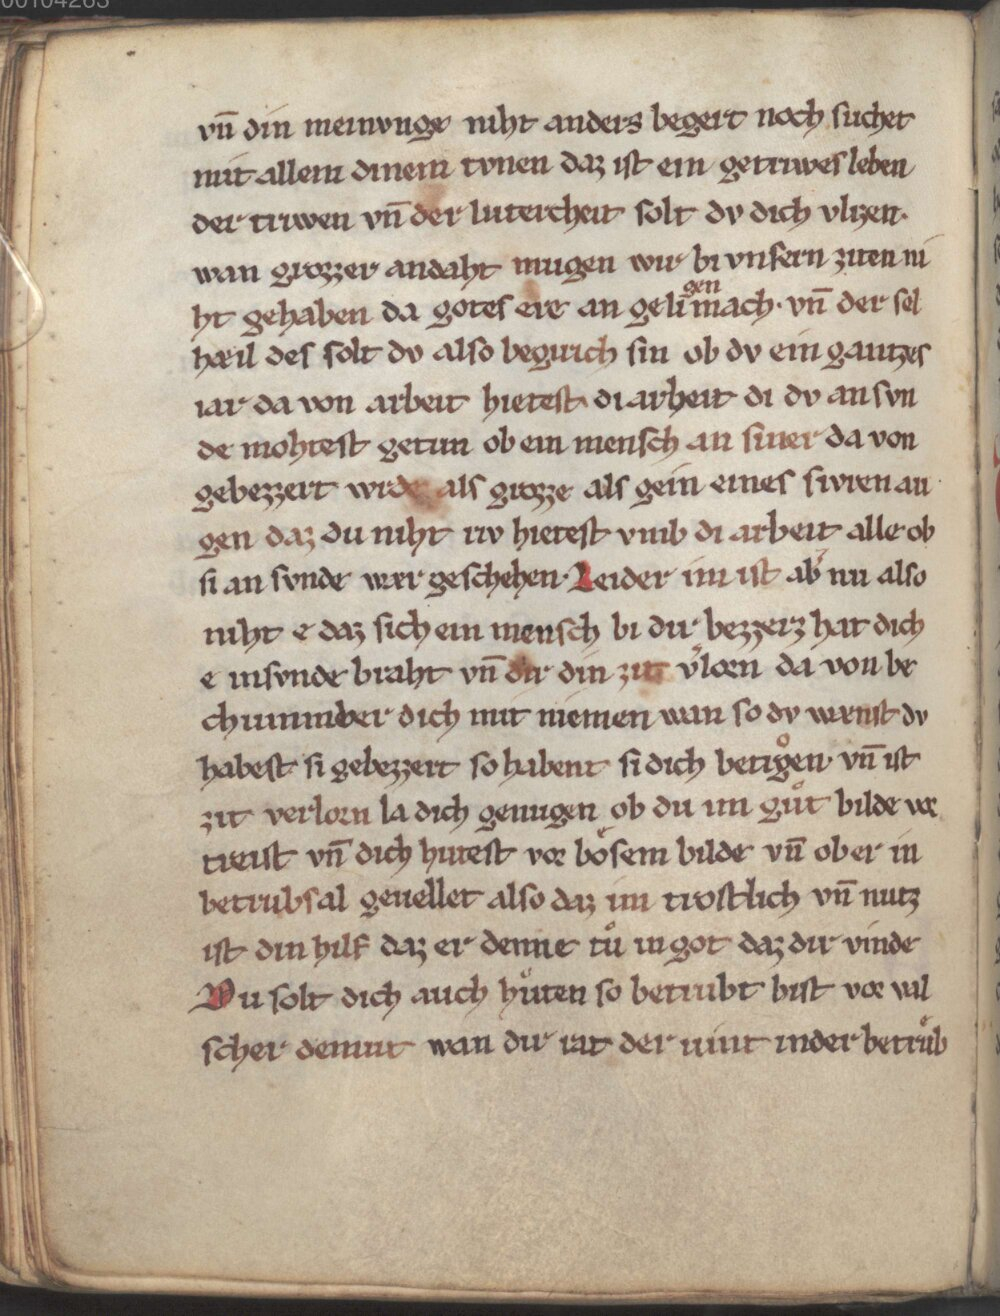 00104263
vn̄ din meinvnge niht anders begert noch suchet
mit allem dinem tvnen daz ist ein getriwes leben
der triwen vn̄ der lutercheit solt dv dich vlizen.
wan grozzer andaht mugen wir bi vnsern ziten ni
ht gehaben da gotes ere an geli gen mach. vn̄ der sel
hæil des solt dv also begirich sin ob dv ein gantzes
iar da von arbeit hietest di arbeit di dv an svn
de mohtest getun ob ein mensch an siner da von
gebezzert wrde als grozze als gein eines sivren au
gen daz du niht riv hietest vmb di arbeit alle ob
si an svnde wær geschehen. Leider im ist ab̓ nu also
niht e daz sich ein mensch bi dir bezzerz hat dich
e in svnde braht vn̄ dir din zit v̓lorn da von be
chummber dich mit niemen wan so dv wænst dv
habest si gebezzert so habent si dich betrogen. vn̄ ist
zit verlorn la dich genugen ob du im gůt bilde vor
treist vn̄ dich hutest vor bosem bilde vn̄ ob er in
betrubsal geuellet also daz im trostlich vn̄ nutz
ist din hilf daz er denne tů in got daz dir vinde
Du solt dich auch hůten so betrubt bist vor val
scher demut wan dir rat der uint in der betrůb